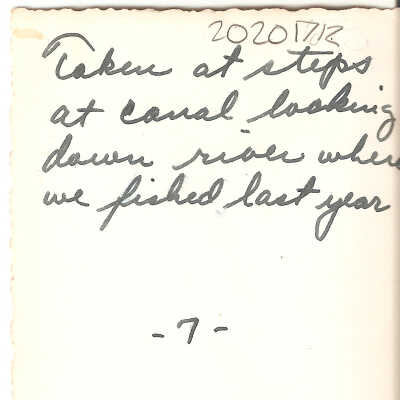 20201712
Taken at steps
at canal looking
down river where
we fished last year
- 7 -